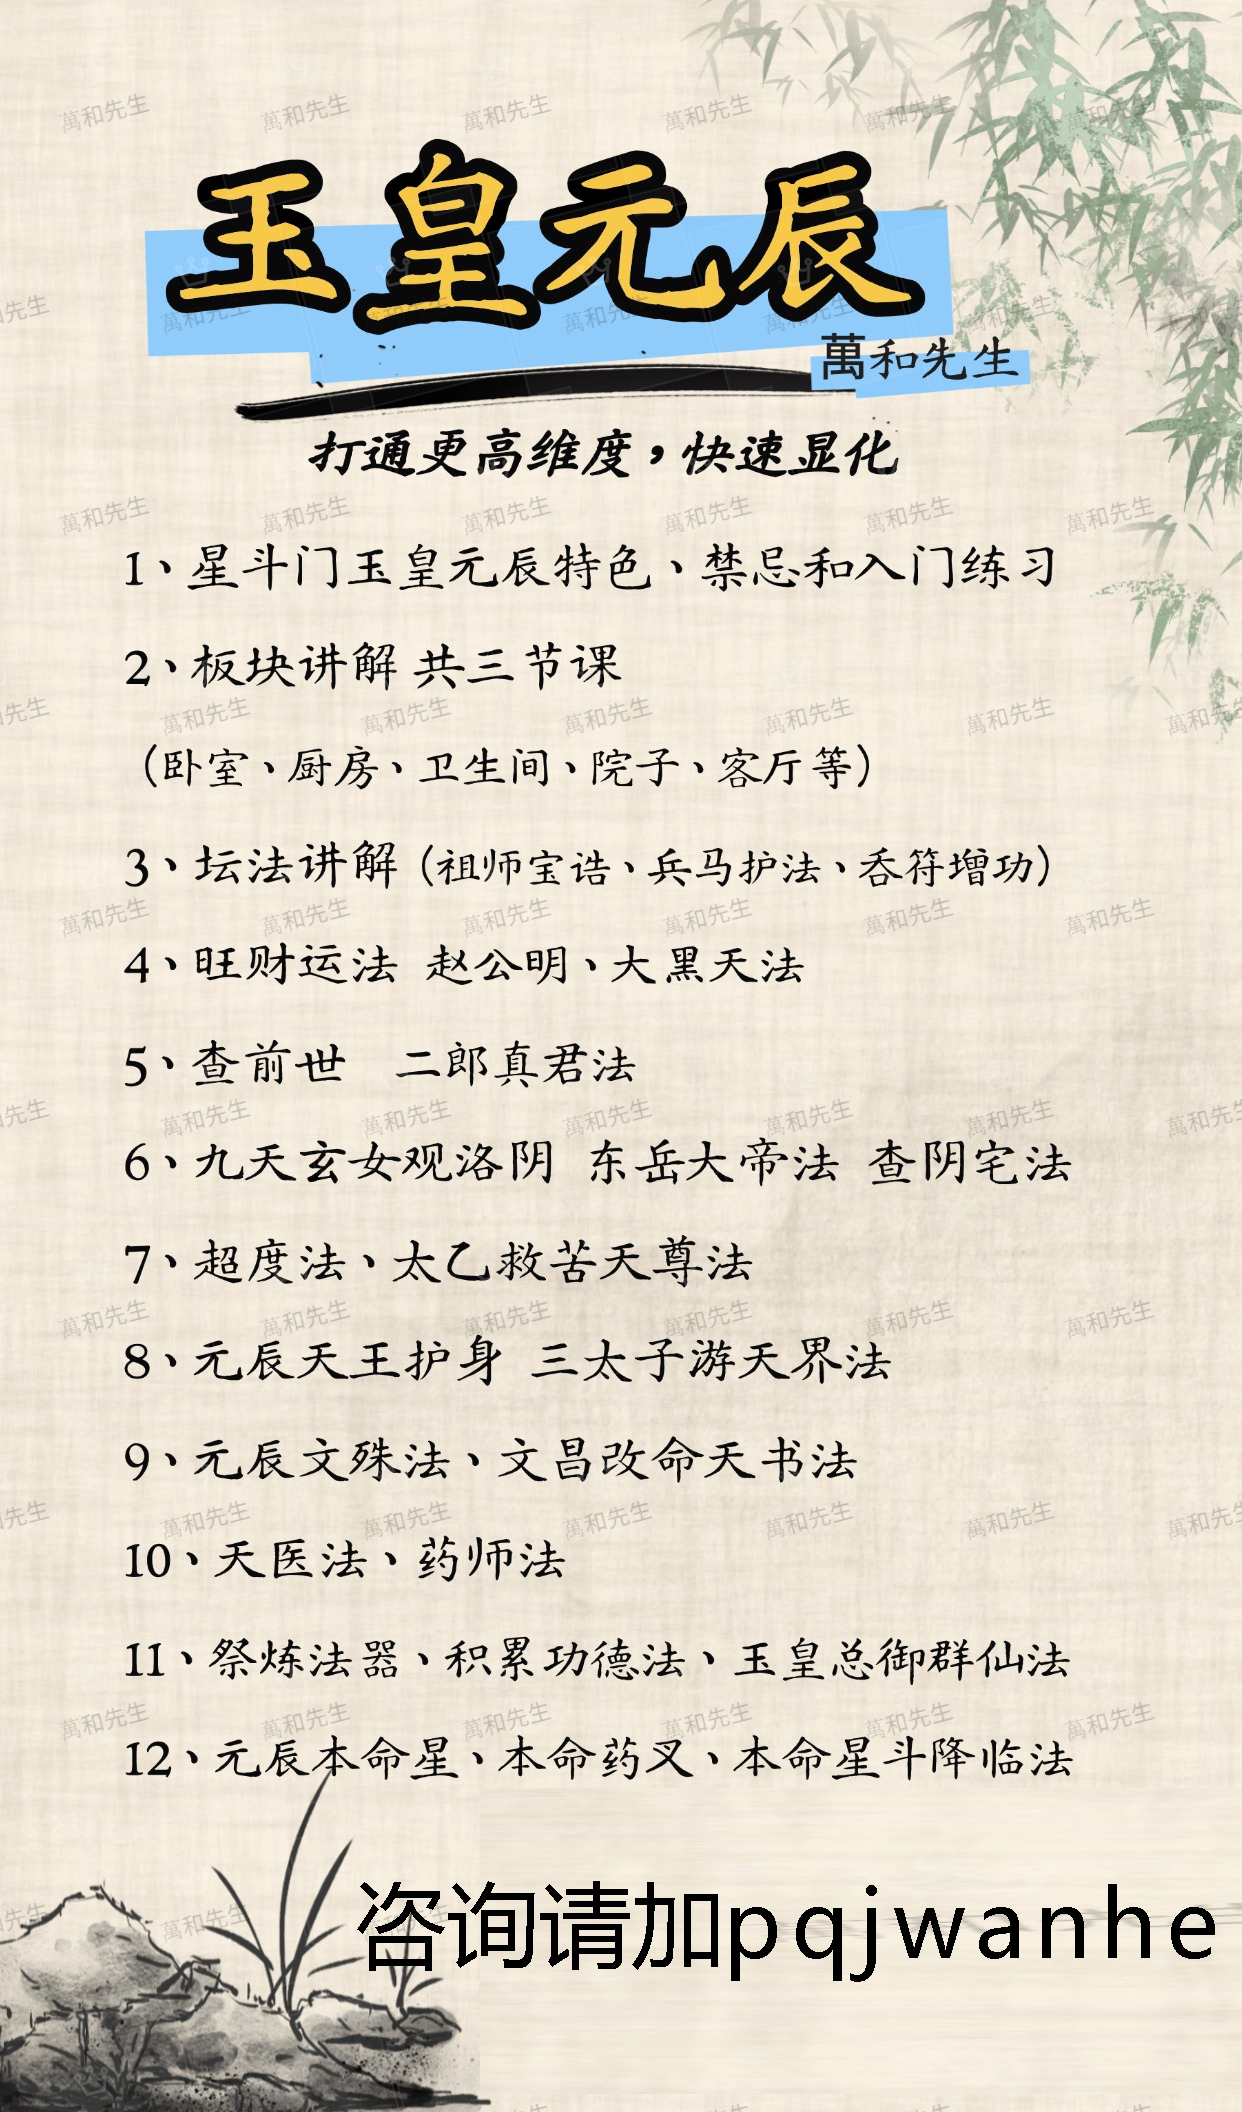 玉皇元辰
萬和先生
打通更高维度，快速显化
1、星斗门玉皇元辰特色、禁忌和入门练习
2、板块讲解 共三节课
（卧室、厨房、卫生间、院子、客厅等）
3、坛法讲解（祖师宝诰、兵马护法、吞符增功）
4、旺财运法 赵公明、大黑天法
5、查前世 二郎真君法
6、九天玄女观洛阴 东岳大帝法 查阴宅法
7、超度法、太乙救苦天尊法
8、元辰天王护身 三太子游天界法
9、元辰文殊法、文昌改命天书法
10、天医法、药师法
11、祭炼法器、积累功德法、玉皇总御群仙法
12、元辰本命星、本命药叉、本命星斗降临法
咨询请加pqjwanhe